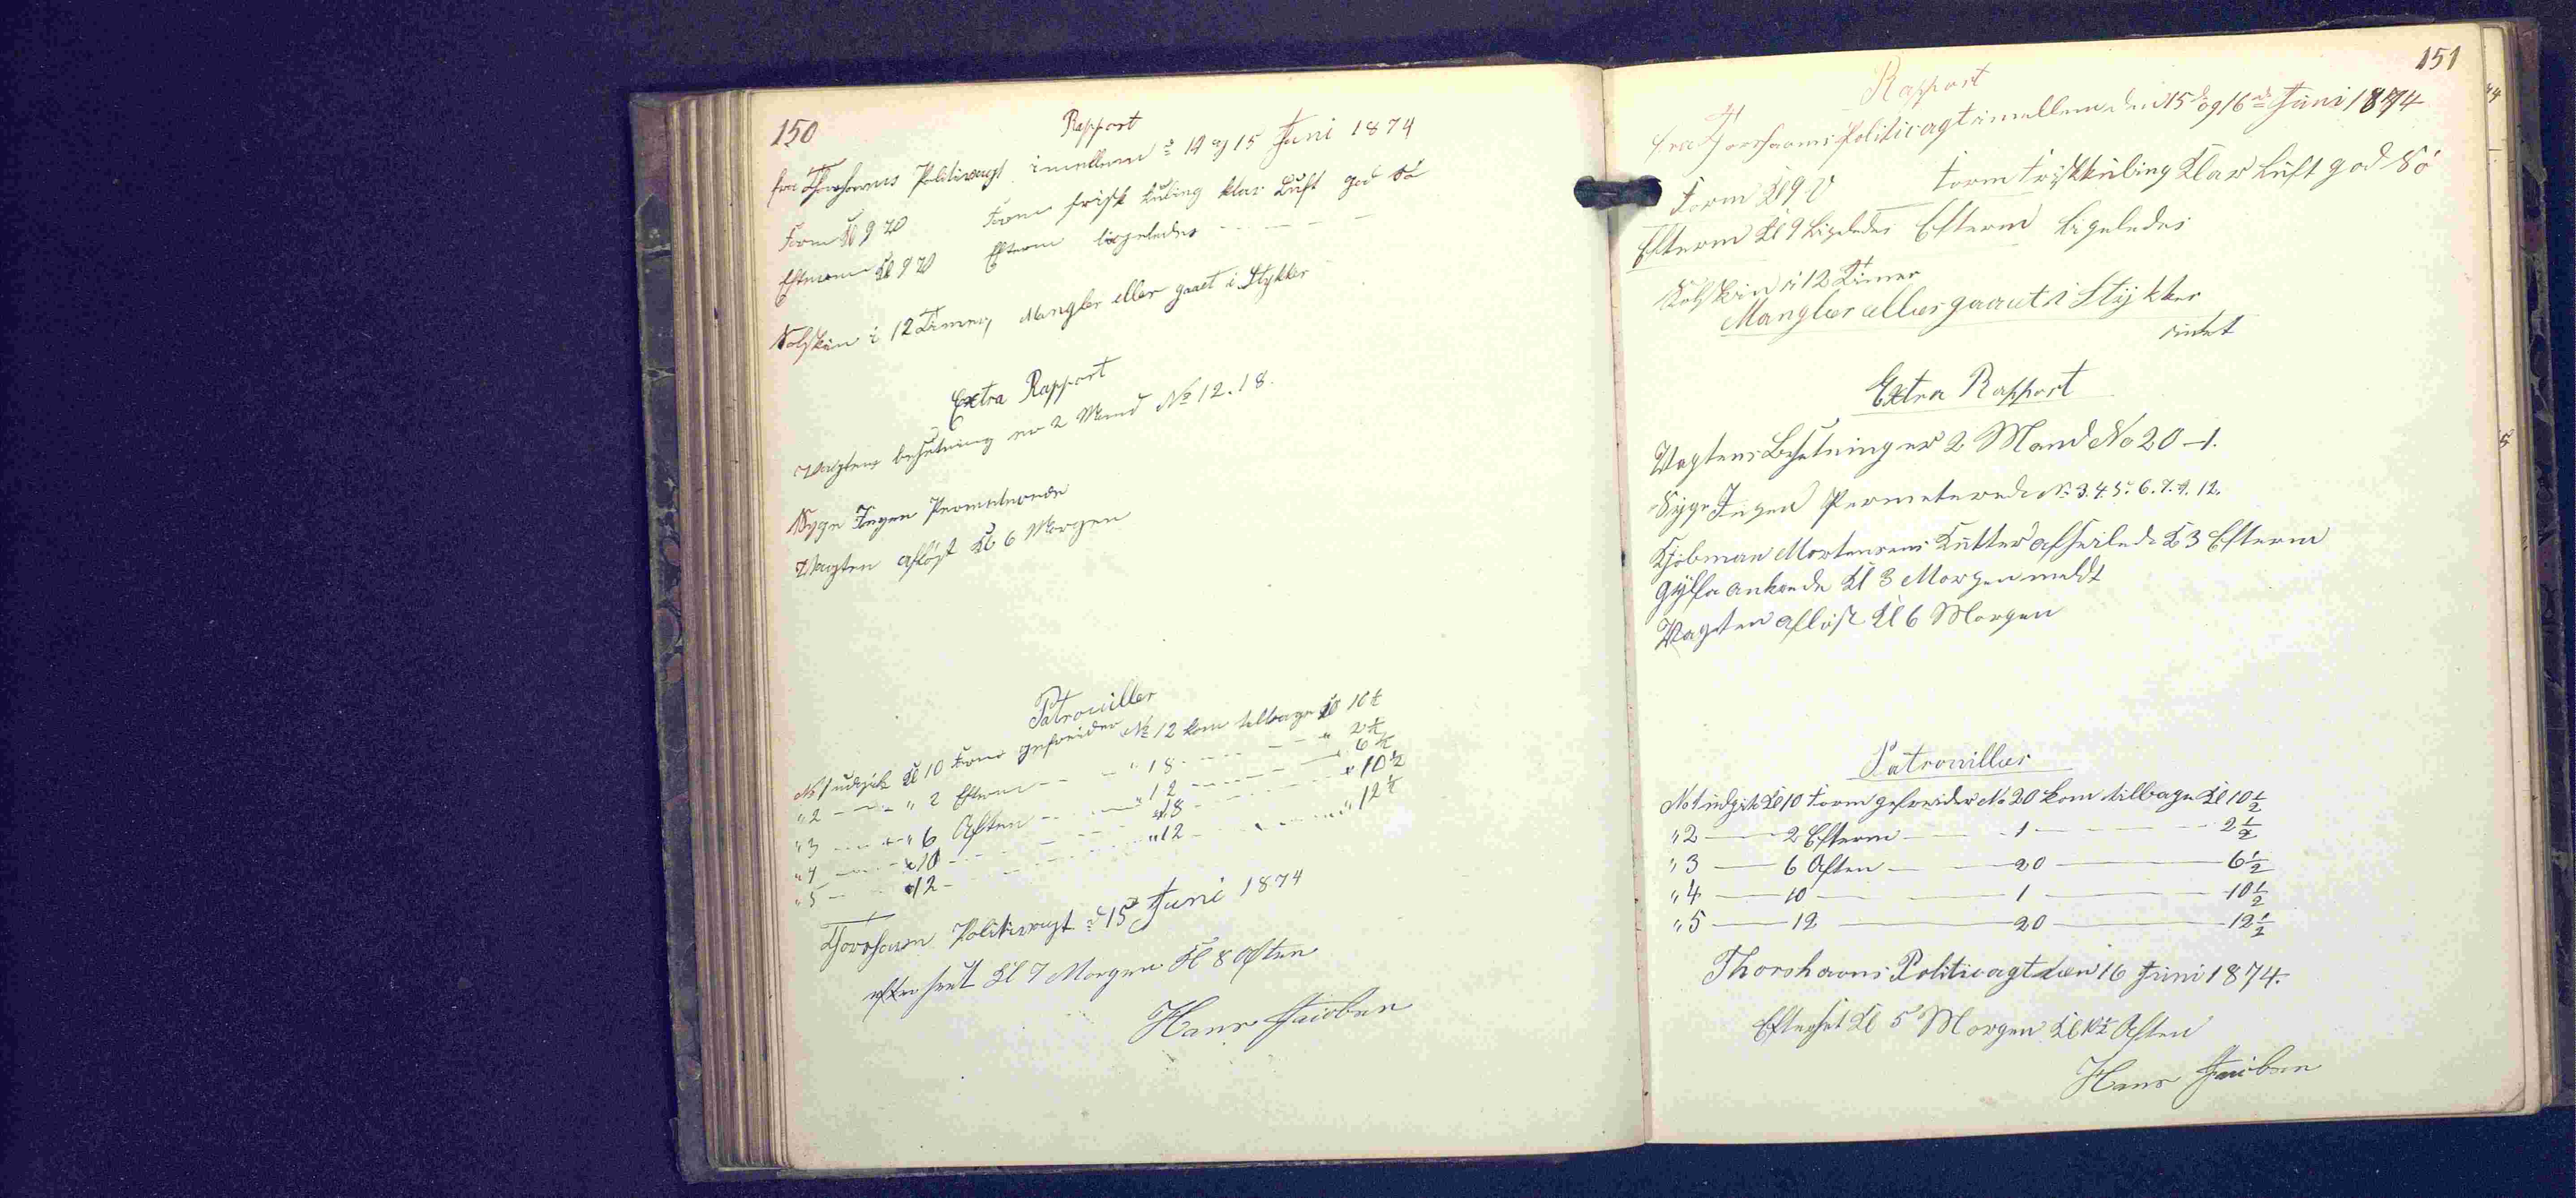 150
Rapport
fra Thorshavns Politivagt imellem d 14 og 15 Juni 1874
Form Kl 9 V Form frisk Kuling klar Luft god Sö
Efterm Kl 9 V Efterm ligeledes
Solskin i 12 Timer, Mangler eller gaaet i Stykker
Extra Rapport
Vagtens besetning er 2 Mand No 12. 18.
Syge Ingen Permeterede
Vagten aflöst Kl 6 Morgen
Patrouiller
No 1 udgik Kl 10 Form gefreider No 12 kom tilbage Kl 10½
" 2 " 2 Efterm " 18 " 2½
" 3 " 6 Aften " 12 " 6½
" 4 " 10 " 18 " 10½
" 5 " 12 " 12 " 12½
Thorshavn Politivagt d 15 Juni 1874
efterseet Kl 7 Morgen Kl 8 Aften
Hans Jacobsen
151
Rapport
fra Thorshavns Politivagt imellem den 15de og 16de Juni 1874
Form Kl 9 V Form Friskkuling Klar Luft god Sö
Efterm Kl 9 Ligeledes Efterm ligeledes
Solskin i 12 Timer
Mangler eller gaaet i Stykker
intet
Extra Rapport
Vagtens Besetning er 2 Mand No 20 – 1.
Syge Ingen Permeterede No 3. 4. 5. 6. 7. 9. 12.
Kjöbman Mortensens Kutter afseilede Kl 3 Efterm
Gylfa ankrede Kl 3 Morgen meldt
Vagten aflöst Kl 6 Morgen
Patrouiller
No 1 udgik Kl 10 Form gefreider No 20 kom tilbage Kl 10½
" 2 — 2 Efterm — 1 — 2½
" 3 — 6 Aften — 20 — 6½
" 4 — 10 — 1 — 10½
" 5 — 12 — 20 — 12½
Thorshavns Politivagt den 16 Juni 1874.
Efterset Kl 5 Morgen Kl Aften
Hans Jacobsen